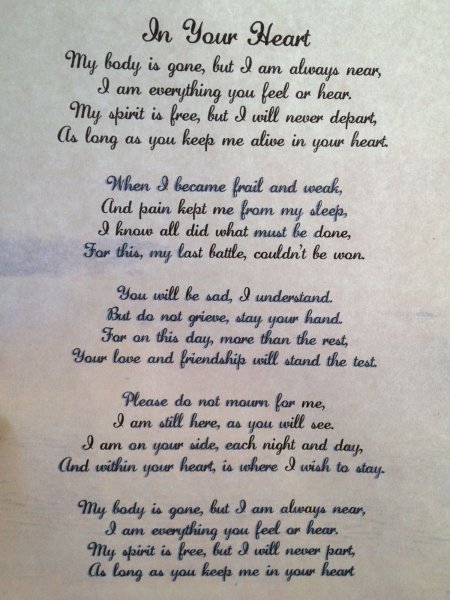 In Your Heart
My body is gone, but I am always near,
I am everything you feel or hear.
My spirit is free, but I will never depart,
As long as you keep me alive in your heart.
When I became frail and weak,
And pain kept me from my sleep,
I know all did what must be done,
For this, my last battle, couldn't be won.
You will be sad, I understand.
But do not grieve, stay your hand.
For on this day, more than the rest,
Your love and friendship will stand the test.
Please do not mourn for me,
I am still here, as you will see.
I am on your side, each night and day,
And within your heart, is where I wish to stay.
My body is gone, but I am always near,
I am everything you feel or hear.
My spirit is free, but I will never part,
As long as you keep me in your heart